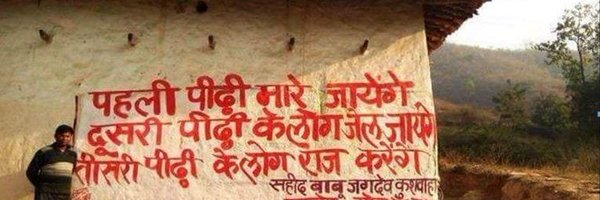 पहली पीढ़ी मारे जायेंगे
दूसरी पीढ़ी के लोग जेल जायेंगे
तीसरी पीढ़ी के लोग राज करेंगे
सहीद बाबू जगदेव कुशवाहा